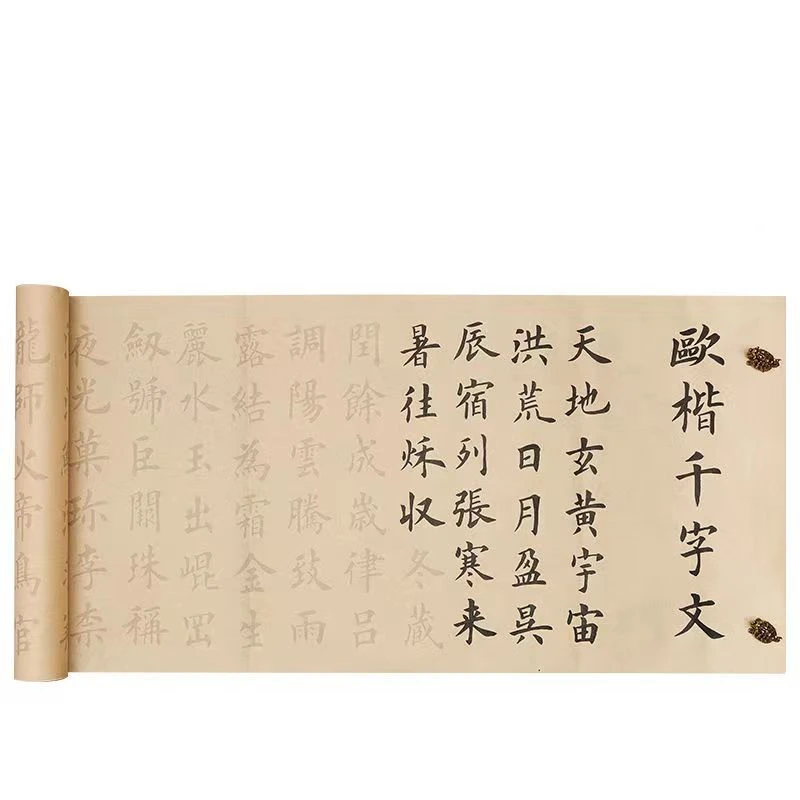 歐楷千字文
天地玄黃宇宙
洪荒日月盈昃
辰宿列張寒来
暑往秌収冬蔵
閏餘成歲律呂
調陽雲騰致雨
露結為霜金生
麗水玉出崐罡
劔號巨闕珠稱
夜光菓珎李柰
龍師火帝鳥官